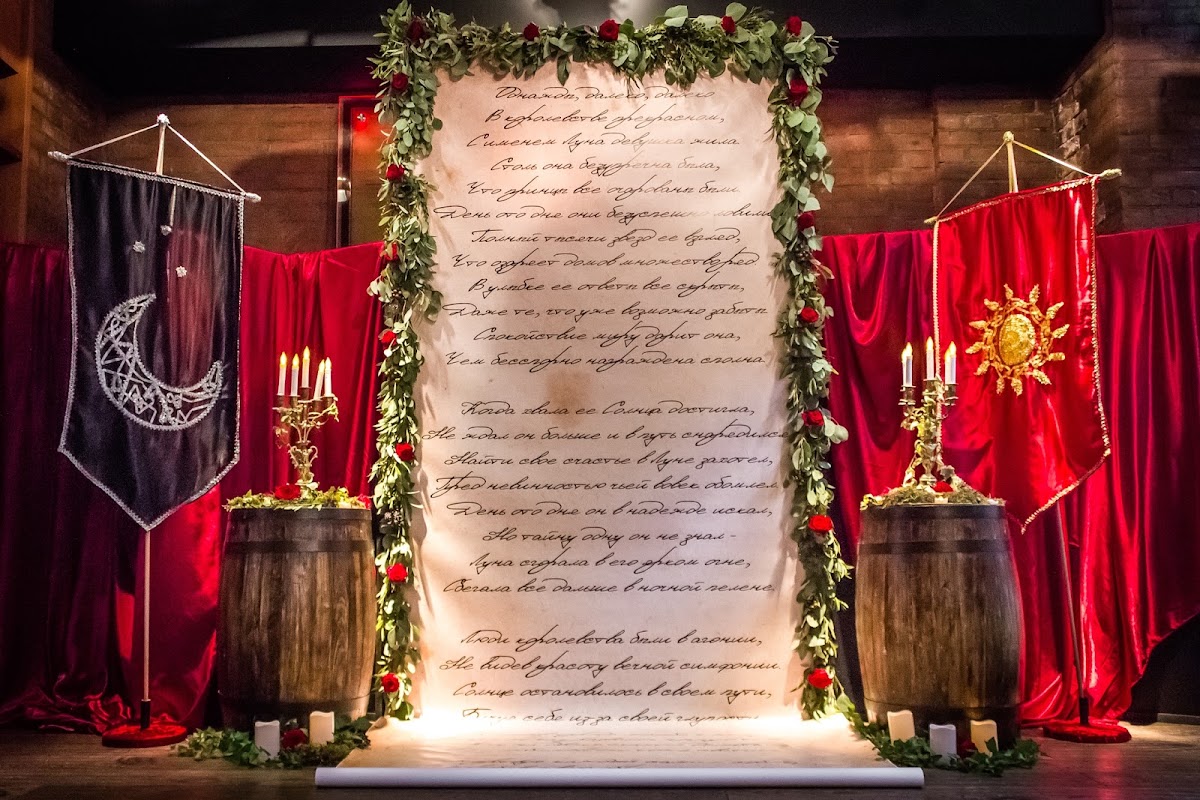 Однажды, далеко, далеко
В королевстве прекрасном,
С именем Луна девушка жила.
Столь она безупречна была,
Что принцы все очарованы были.
День ото дня они безуспешно ловили
Полный тысячи звезд ее взгляд,
Что озаряет домов множество ряд
В улыбке ее ответы все скрыты,
Даже те, что уже возможно забыты.
Спокойствие миру дарит она,
Чем бесспорно награждена сполна.
Когда хвала ее Солнца достигла,
Не ждал он больше и в путь снарядился
Найти свое счастье в Луне захотел,
Пред невинностью чьей вовек обомлел.
День ото дня он в надежде искал,
Но тайну одну он не знал -
Луна сгорала в его ярком огне,
Сбегала все дальше в ночной пелене.
Люди королевства были в агонии,
Не видев красоту вечной симфонии.
Солнце остановилось в своем пути,
себе из за своей глупости